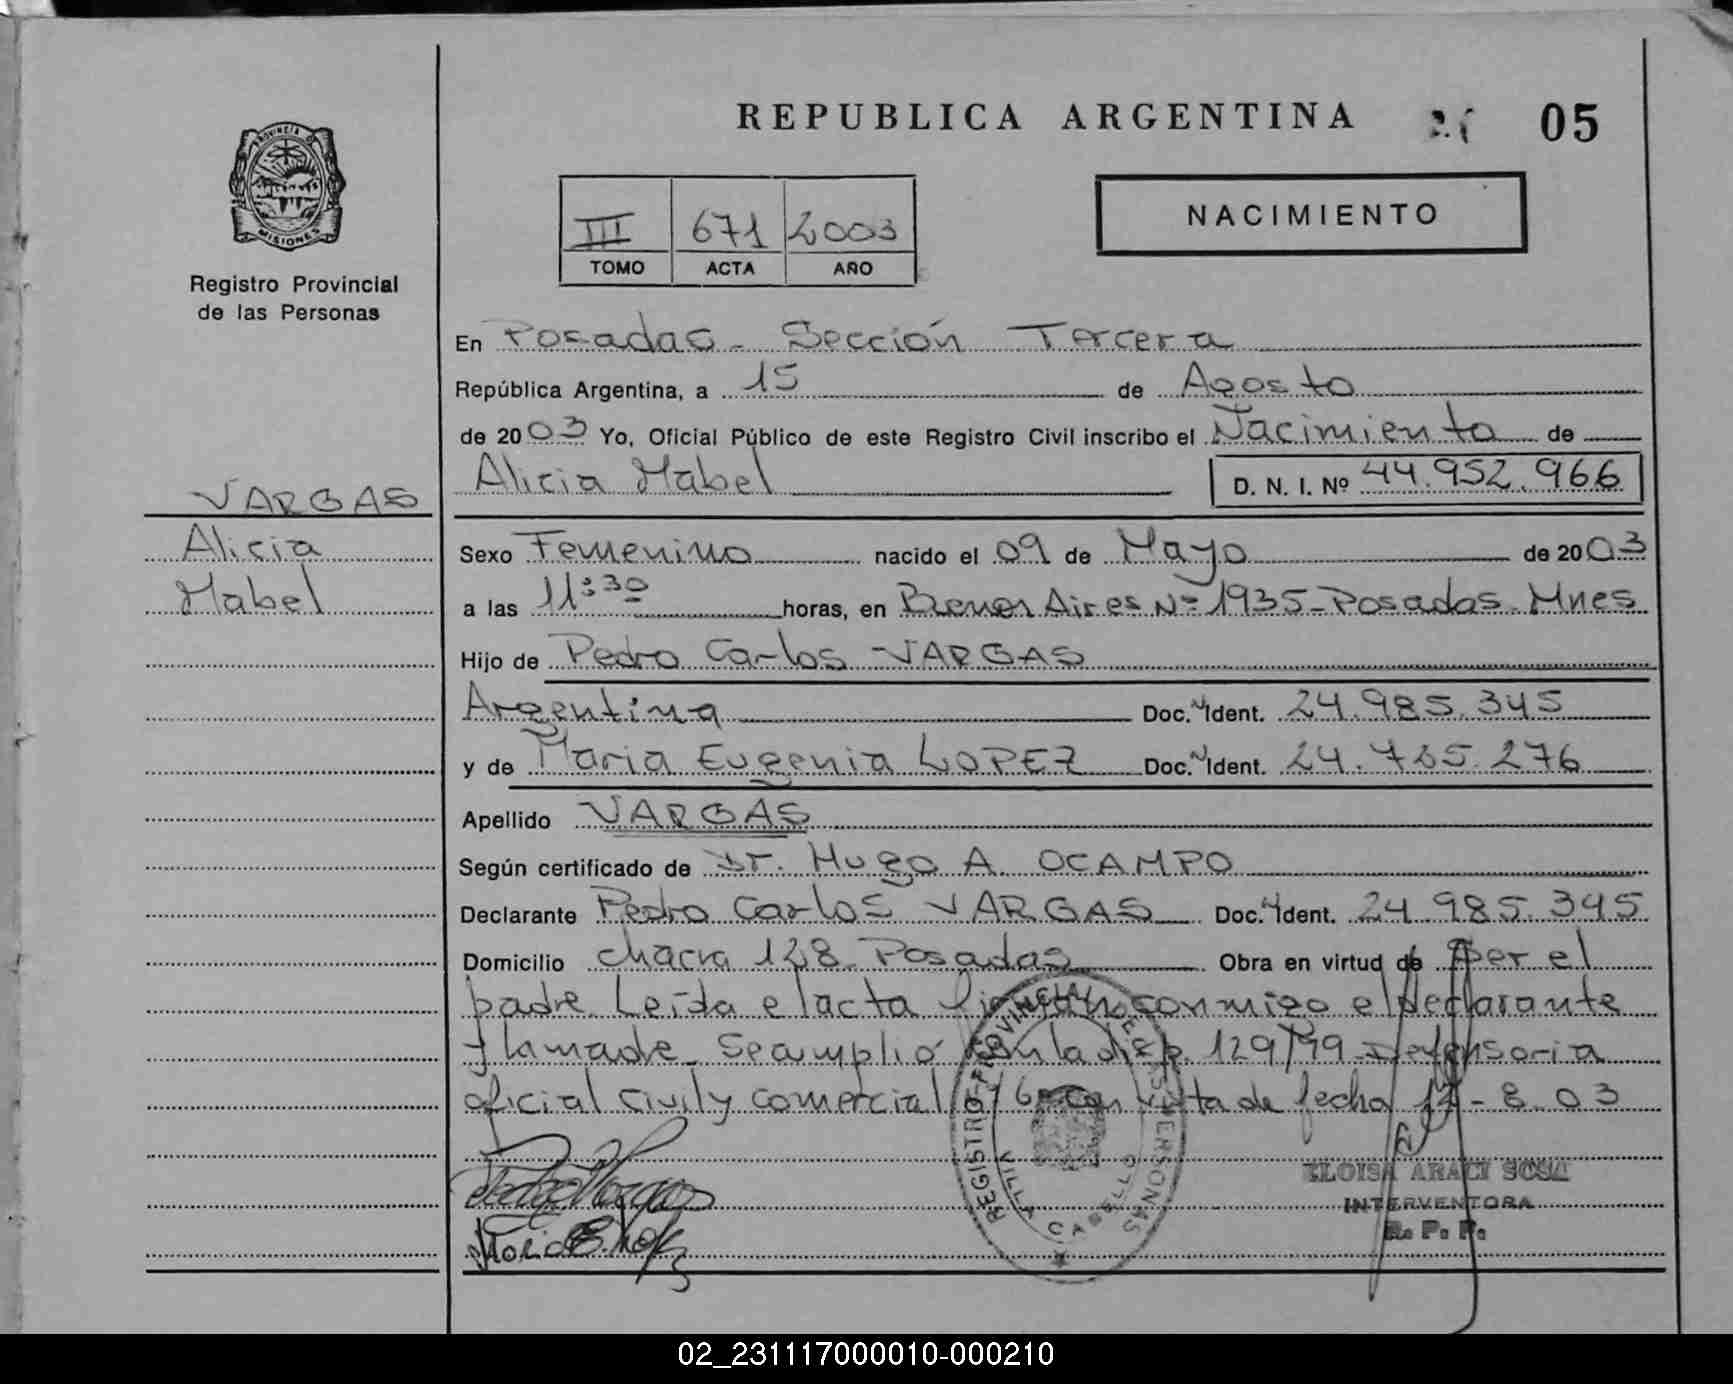 REPUBLICA ARGENTINA 05
PROVINCIA DE MISIONES
Registro Provincial
de las Personas
III 671 2003
TOMO ACTA AÑO
NACIMIENTO
En Posadas - Sección Tercera
República Argentina, a 15 de Agosto
de 2003 Yo, Oficial Público de este Registro Civil inscribo el Nacimiento de
Alicia Mabel D. N. I. Nº 44.952.966
VARGAS
Alicia
Mabel
Sexo Femenino nacido el 09 de Mayo de 2003
a las 11:30 horas, en Buenos Aires Nº 1935-Posadas-Mnes
Hijo de Pedro Carlos VARGAS
Argentina Doc. Ident. 24.985.345
y de Maria Eugenia LOPEZ Doc. Ident. 24.765.276
Apellido VARGAS
Según certificado de Dr. Hugo A. OCAMPO
Declarante Pedro Carlos VARGAS Doc. Ident. 24.985.345
Domicilio chacra 128 Posadas Obra en virtud de ser el
padre Leida el acta firman conmigo el declarante
y la madre. Se cumplió con la disp. 129/99-Defensoria
oficial Civil y comercial Nº 6 con vista de fecha 14-8-03
REGISTRO PROVINCIAL DE LAS PERSONAS
VILLA CABELLO
ELOISA ARACI SOSA
INTERVENTORA
R. P. P.
02_231117000010-000210